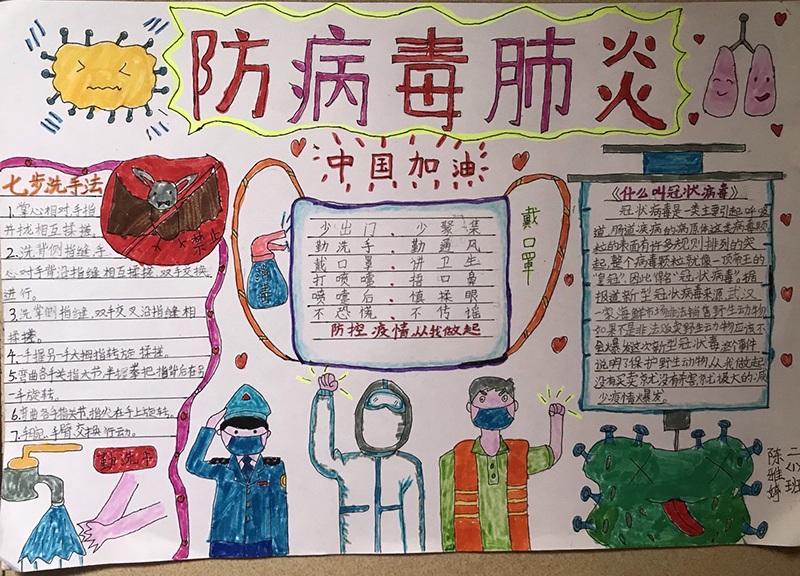 防病毒肺炎
中国加油
七步洗手法
1.掌心相对,手指
并拢相互揉搓。
2.洗背侧指缝手
心对手背沿指缝相互揉搓,双手交换
进行。
3.洗掌侧指缝,双手交叉沿指缝相
揉搓。
4.手握另一手大拇指转旋 揉搓。
5.弯曲各手关指大节,半握拳把指背后在另
一手旋转。
6.弯曲各手指关节指尖在手上旋转。
7.手腕、手臂交换行动。
禁止
勤洗手
消毒
少出门、少聚集
勤洗手、勤通风
戴口罩、讲卫生
打喷嚏、捂口鼻
喷嚏后、慎揉眼
不恐慌、不传谣
防控疫情从我做起
戴口罩
《什么叫冠状病毒》
冠状病毒是一类主要引起呼吸
道、肠道疾病的病原体这类病毒颗
粒的表面有许多规则排列的突
起,整个病毒颗粒就像一顶帝王的
“皇冠”,因此得名“冠状病毒”,据
报道新型冠状病毒来源武汉
一家海鲜市场非法销售野生动物
如果不是非法贩卖野生动物应该不
会爆发这次新型冠状毒 这个事件
说明了保护野生动物从我做起
没有买卖就没有杀害就极大的减
少疫情爆发。
二(1)班
陈雅婷